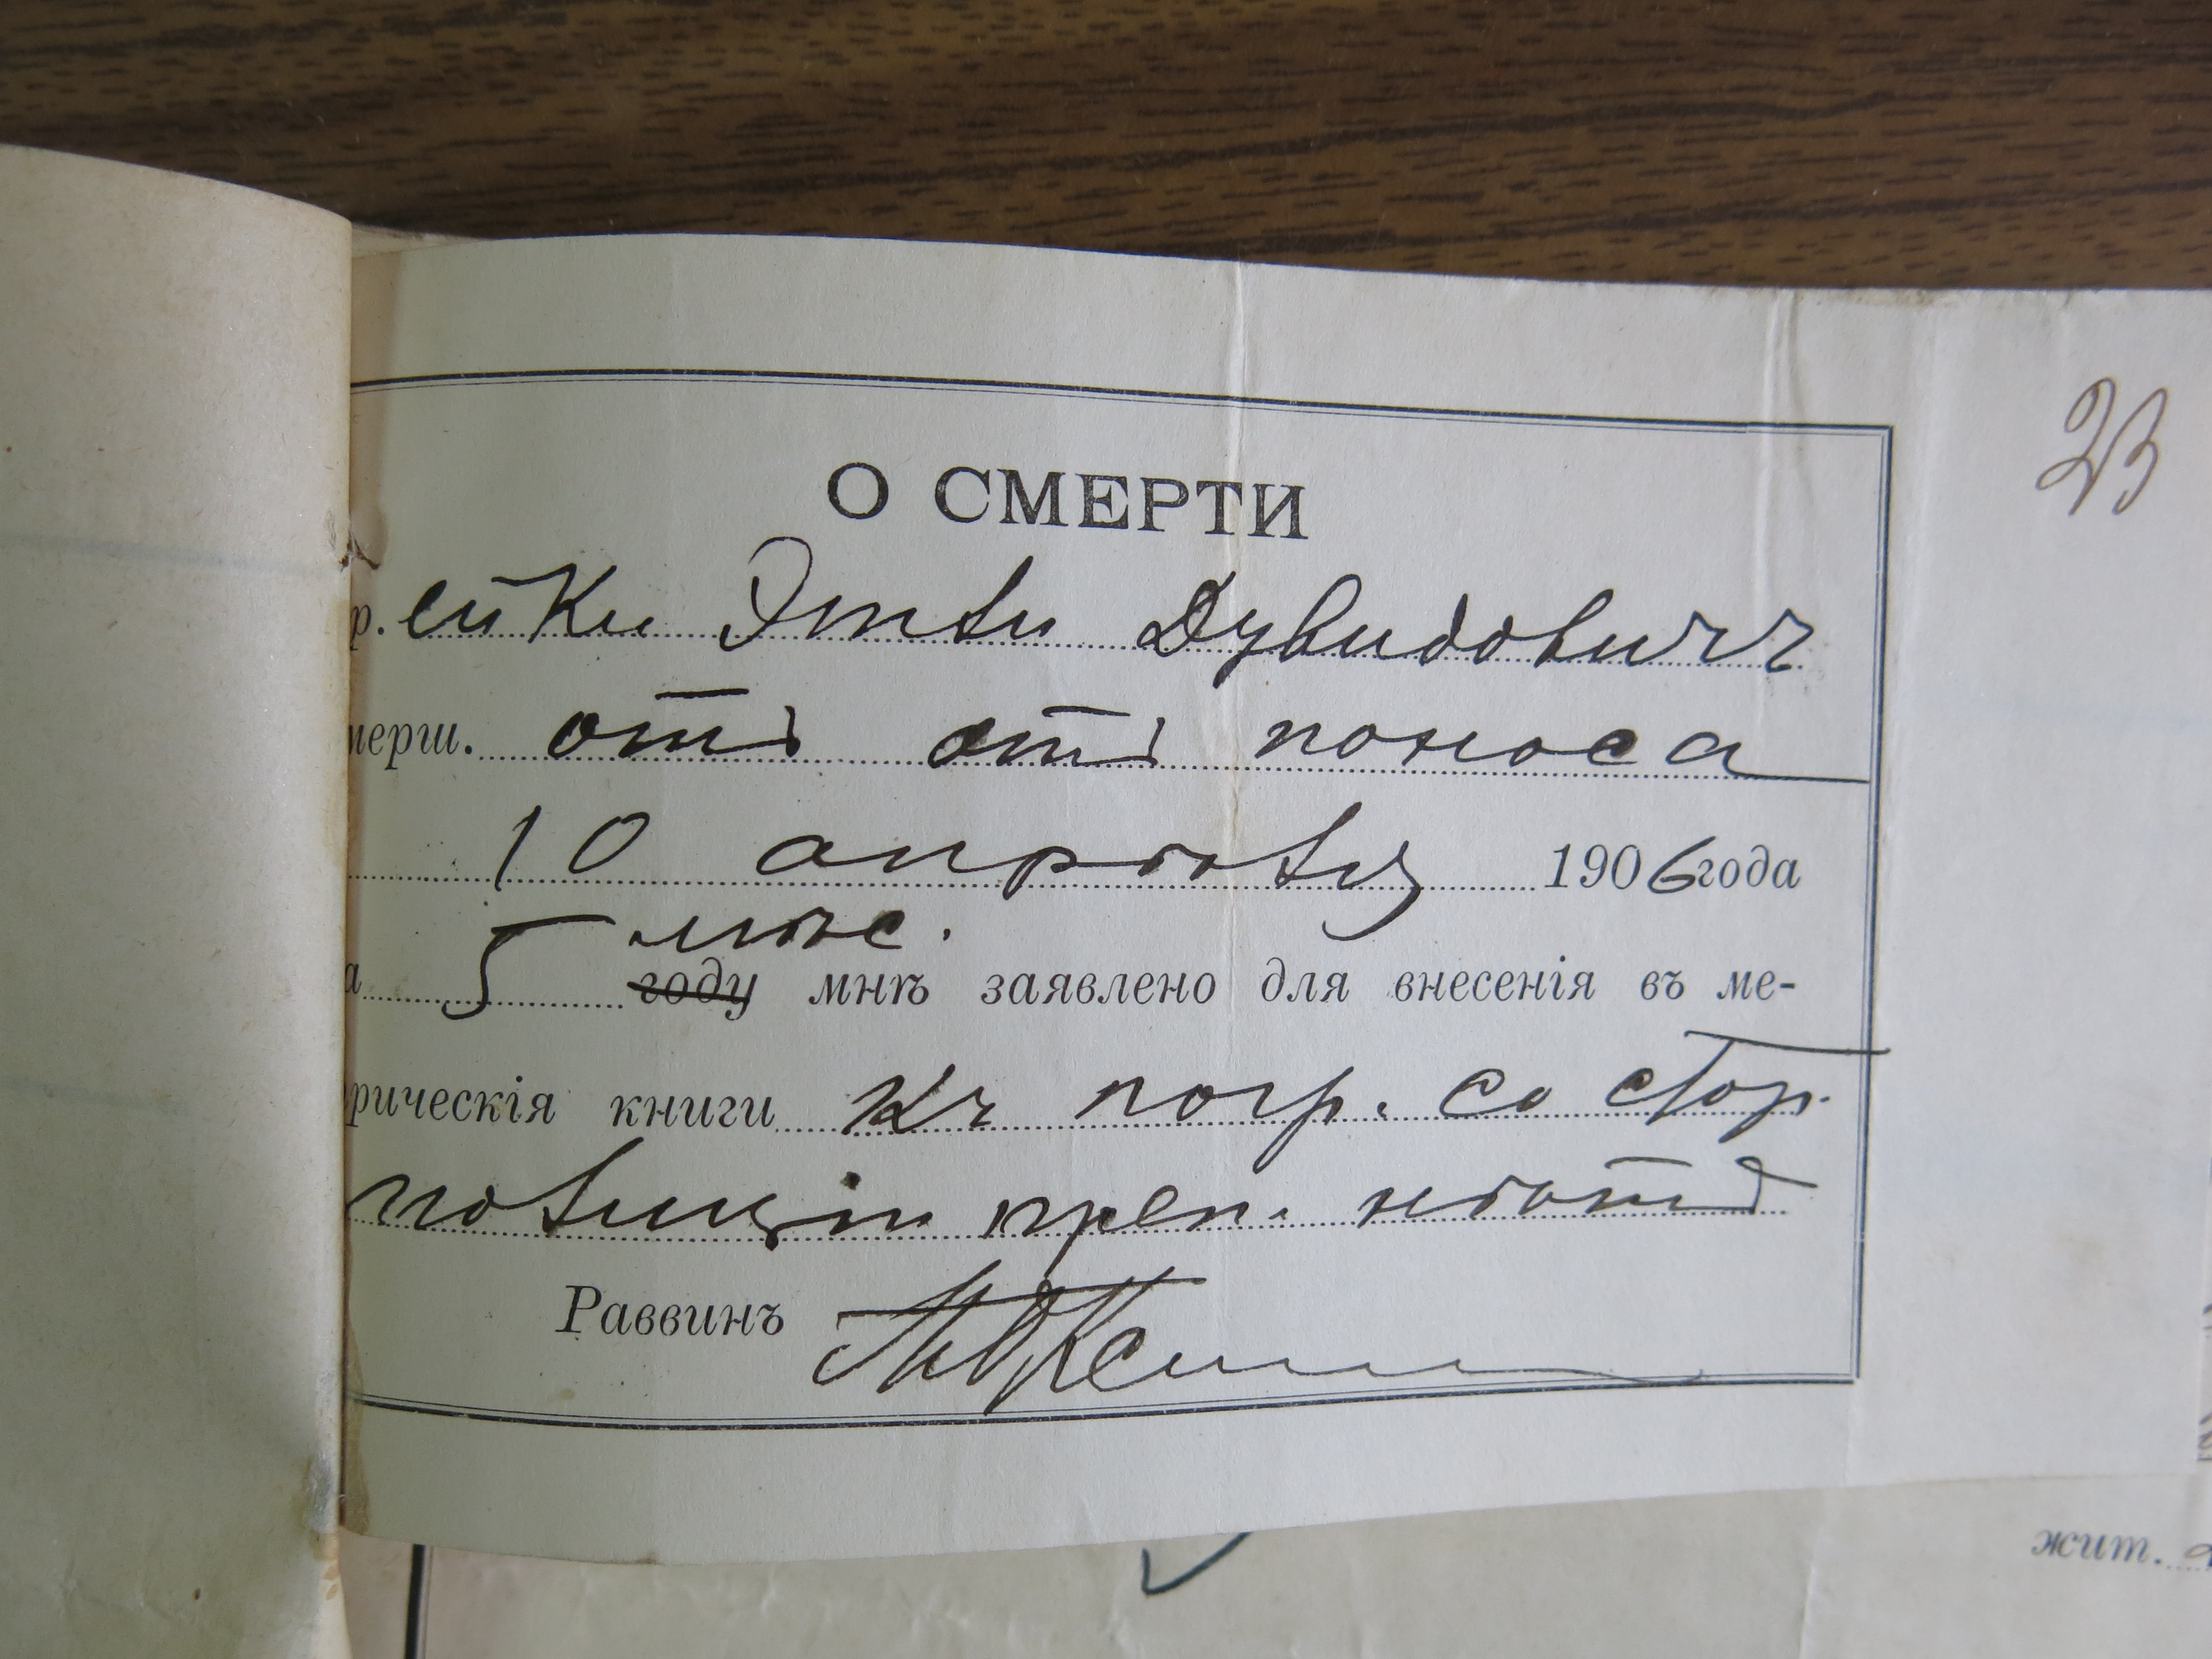 23
О СМЕРТИ
р. ейки Этли Дувидовичъ
мерш. отъ отъ поноса
10 апрѣля 1906 года
мѣс.
а 5 году мнѣ заявлено для внесенія въ ме-
рическія книги къ погр. со стор.
полиціи преп. нѣтъ
Раввинъ
жит.